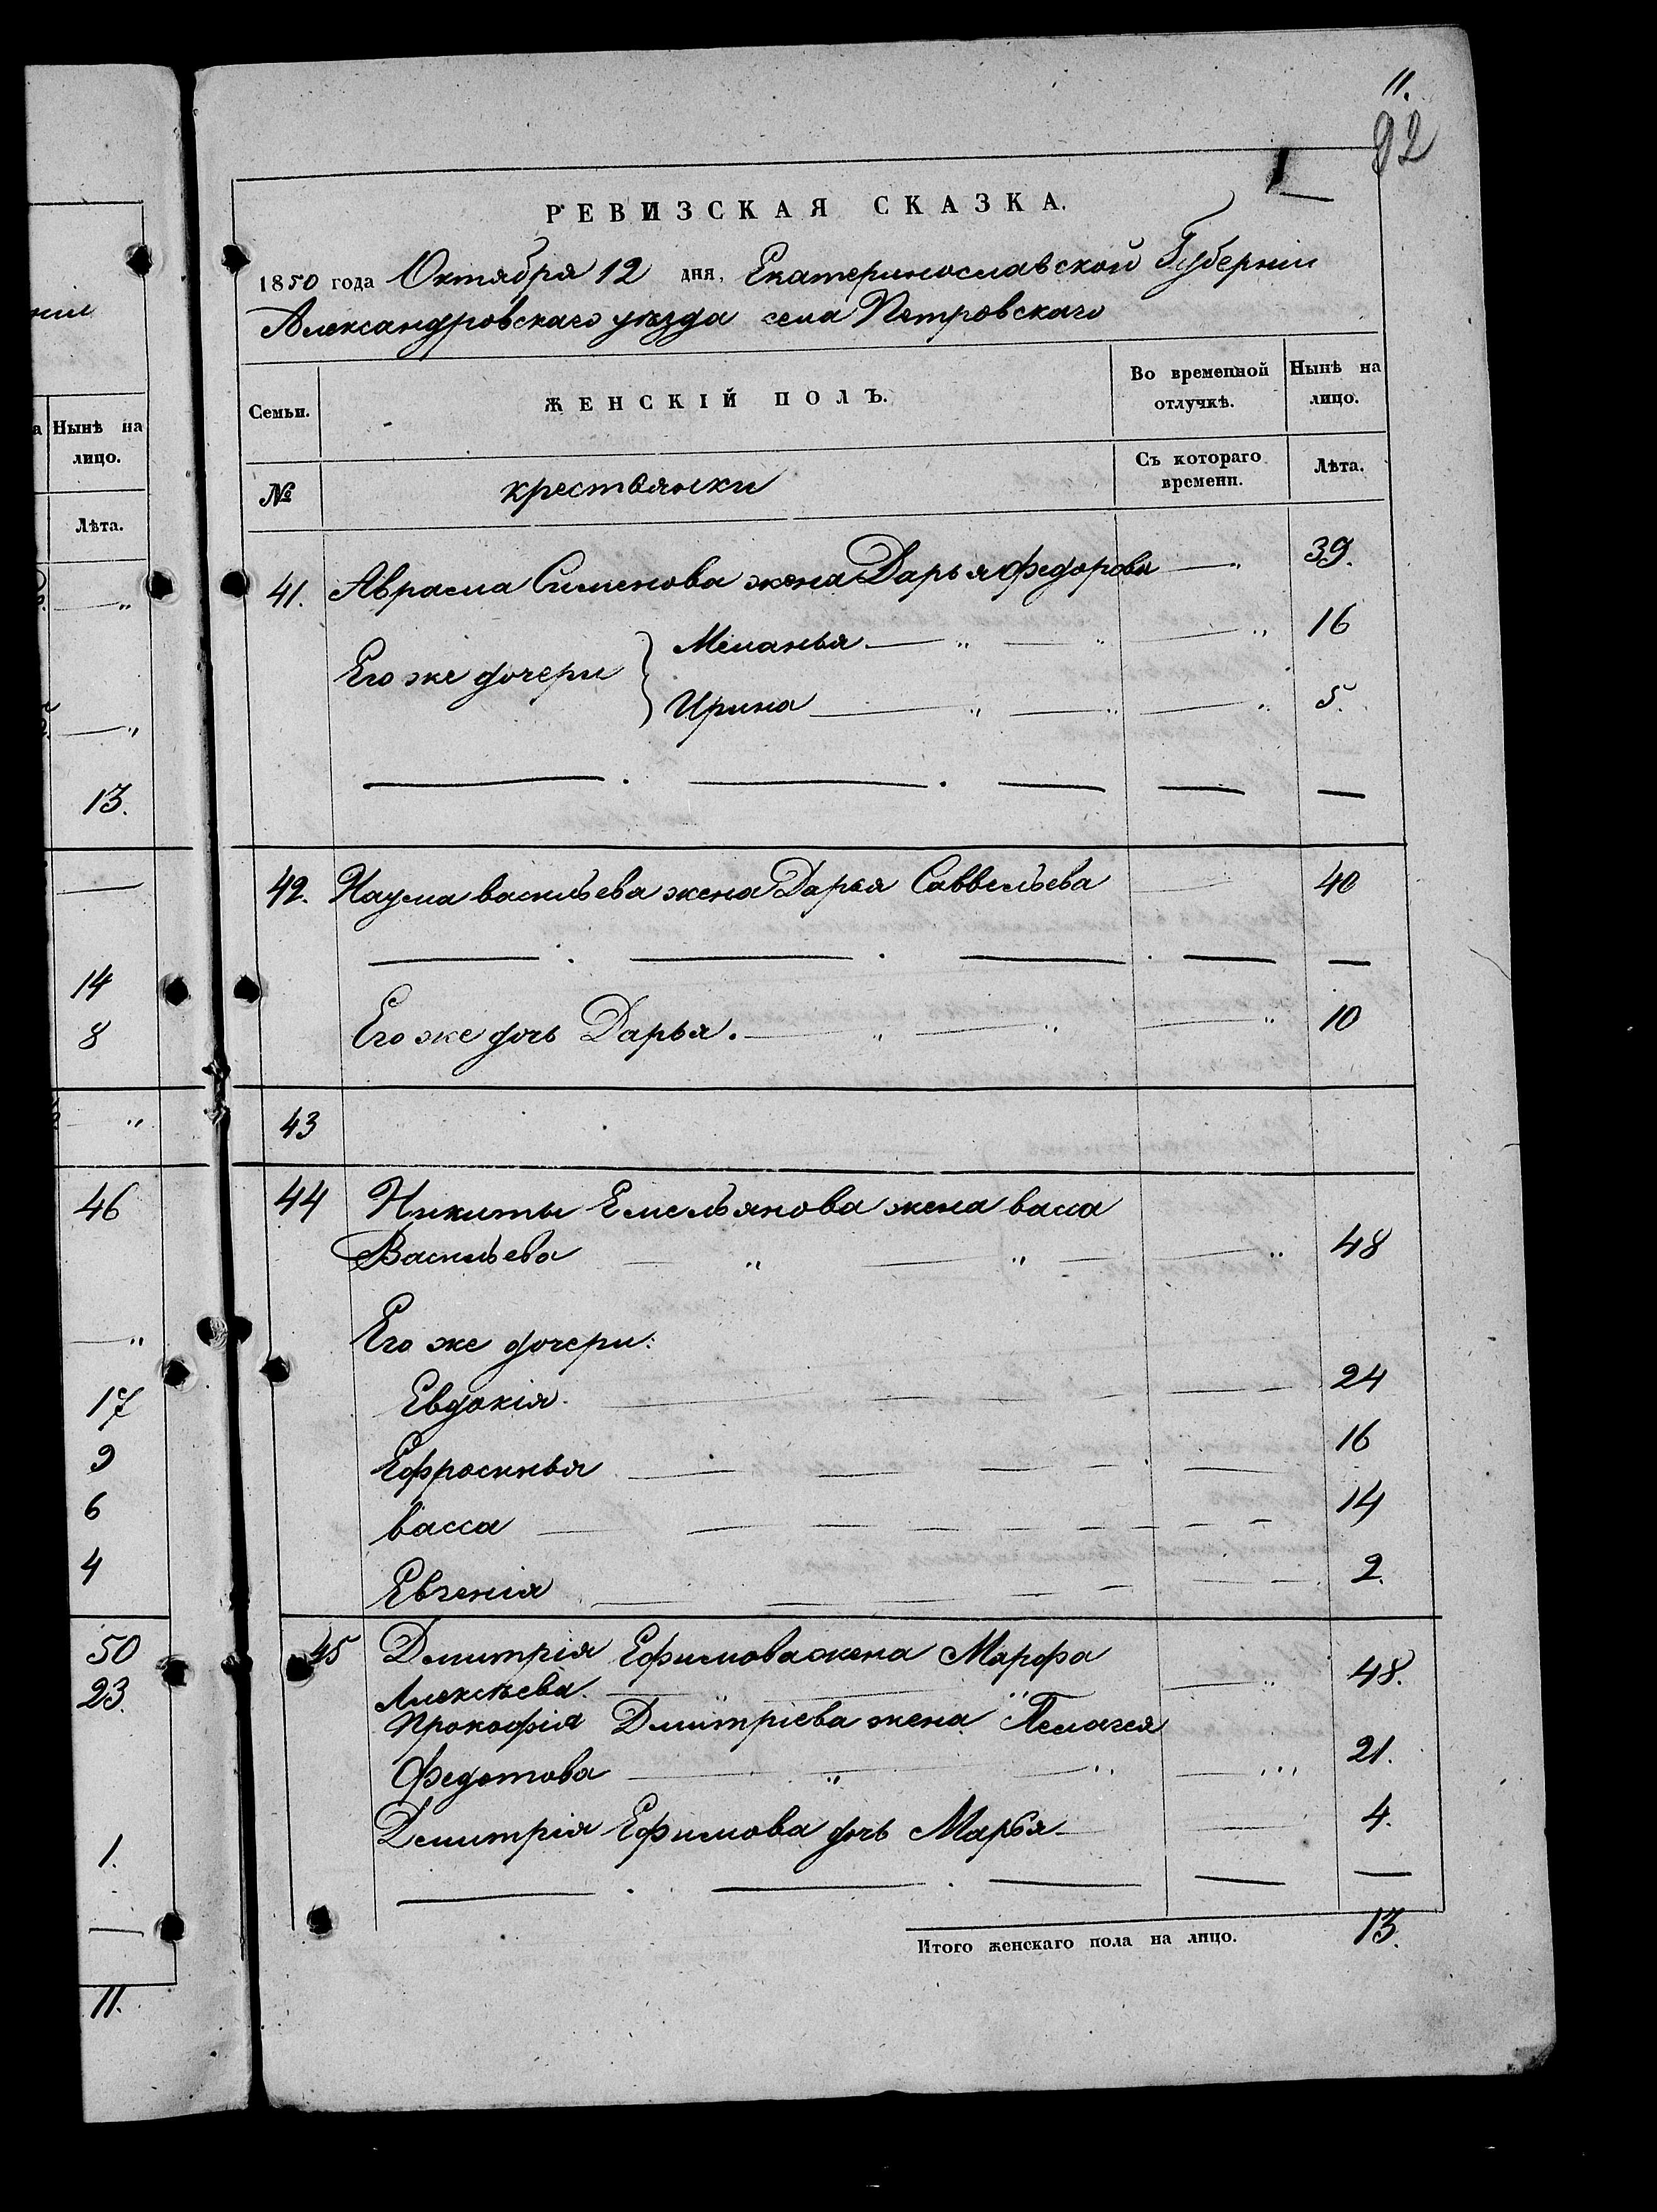 11.
92
РЕВИЗСКАЯ СКАЗКА.
1850 года Октября 12 дня, Екатеринославской Губерніи
Александровскаго уѣзда села Петровскаго
Семьи. ЖЕНСКІЙ ПОЛЪ. Во временной отлучкѣ. Нынѣ на лицо.
№ крестьянки Съ котораго времени. Лѣта.
41. Абрама Сименова жена Дарья Федорова — " 39.
Его же дочери } Меланья — " — " — " 16
Ирина — " — " — " 5.
— . — . — — —
42. Наума васильева жена Дарья Саввельева — 40
— . — . — . — —
Его же дочь Дарья. — " — " — " 10
43
44 Никиты Емельянова жена васса
Васильева — " — " — — " 48
Его же дочери:
Евдокія. — — — — 24
Ефросинья — — — — — 16
васса — — — — — — — — 14
Евгенія — — — — — — 2.
45 Дмитрія Ефимова жена Марфа
Алексѣева. — " — " — " 48.
Прокофія Дмитріева жена Пелагея
Федотова — " — " — " 21.
Дмитрія Ефимова дочь Марья — — 4.
— . — . — — —
Итого женскаго пола на лицо. 13.
ніи
а Нынѣ на
лицо.
Лѣта.
— "
— "
13.
—
14
8
— "
46
— "
17
9
6
4
50
23.
1.
—
11.